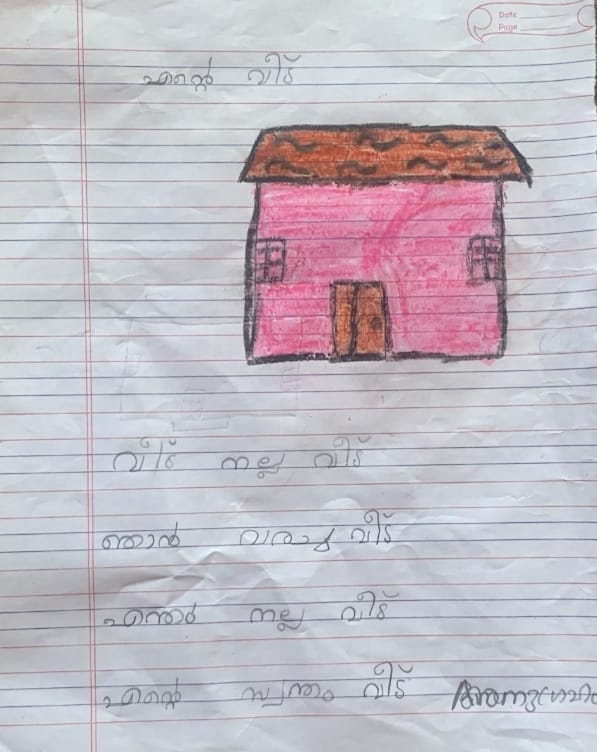 Date
Page
എന്റെ വീട്
വീട് നല്ല വീട്
ഞാൻ വരച്ച വീട്
എന്താർ നല്ല വീട്
എന്റെ സ്വന്തം വീട്